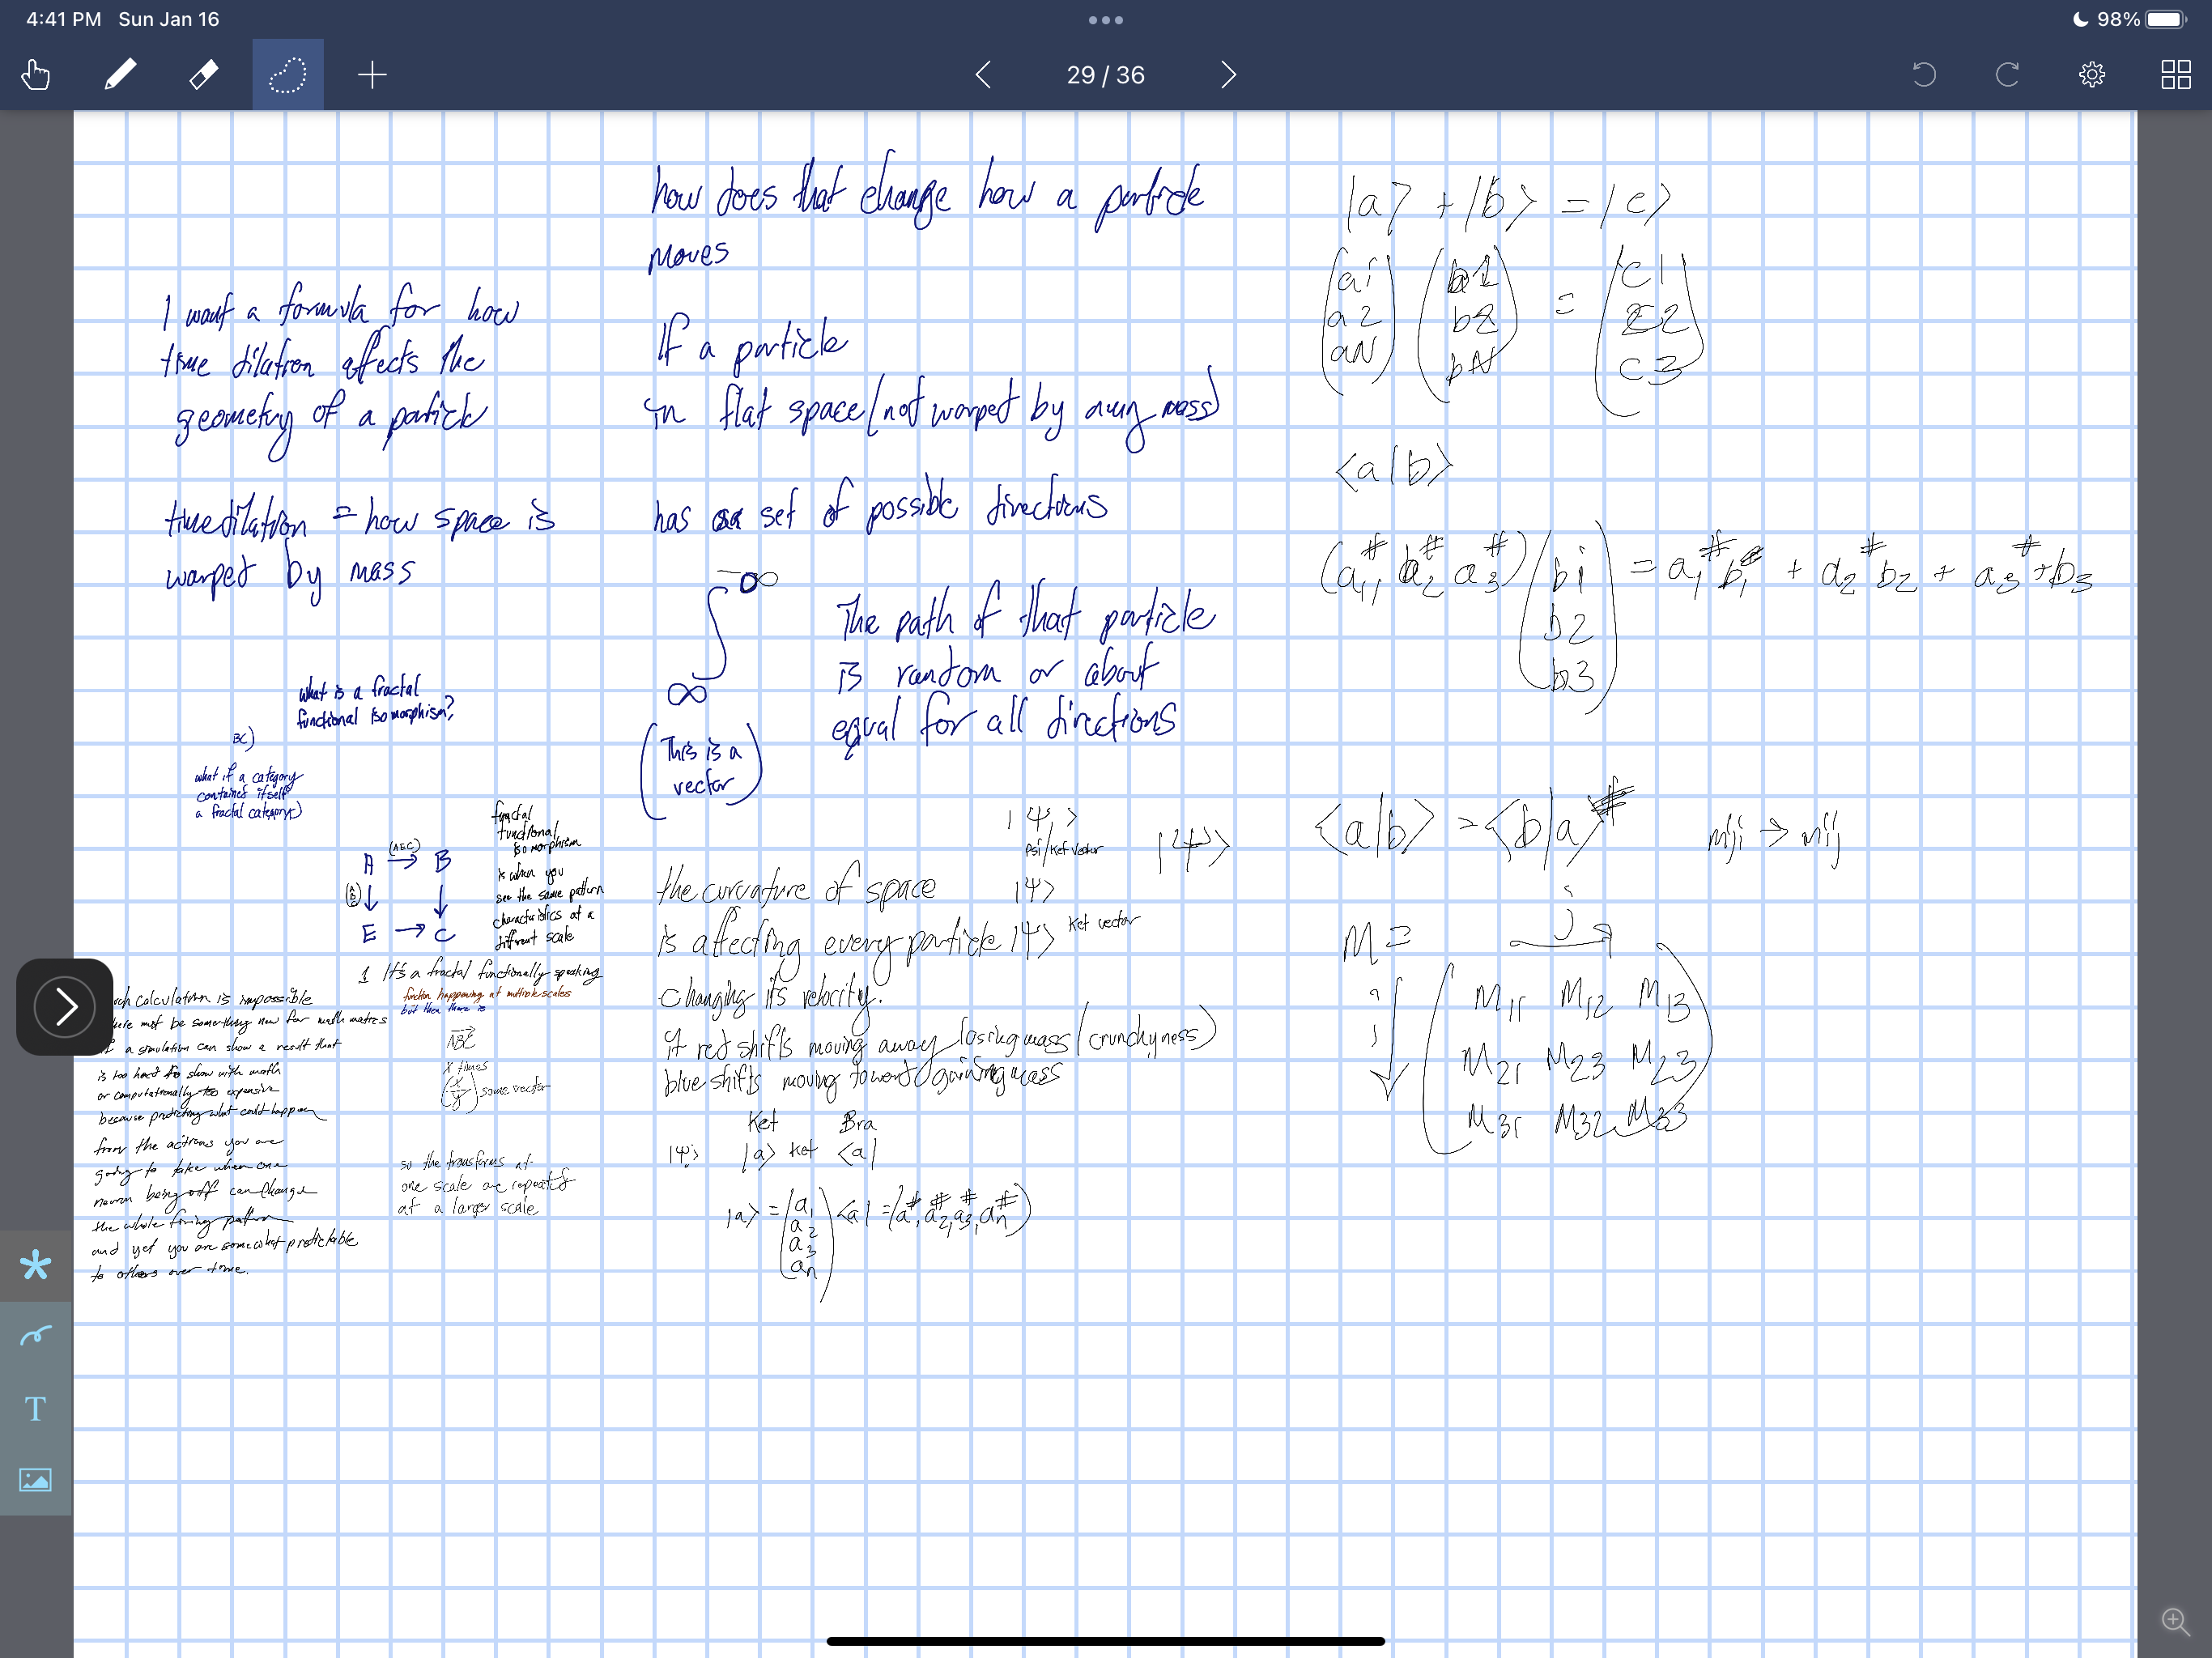 4:41 PM Sun Jan 16
98%
29 / 36
I want a formula for how
time dilation affects the
geometry of a particle
time dilation = how space is
warped by mass
what is a fractal
functional isomorphism?
BC)
what if a category
contained itself
a fractal category)
(ABC)
A → B
↓ ↓
E → C
fractal
functional
isomorphism
is when you
see the same pattern
characteristics at a
different scale
1 It's a fractal functionally speaking
function happening at multiple scales
but then there is
ABC
X times
(x/y) same vector
so the transforms at
one scale are repeated
at a larger scale
calculation is impossible
must be something new for math
a simulation can show a result that
is too hard to show with math
or computationally too expensive
because predicting what could happen
from the actions you are
going to take when one
neuron being off can change
the whole firing pattern
and yet you are somewhat predictable
to others over time.
how does that change how a particle
moves
If a particle
in flat space (not warped by any mass)
has a set of possible directions
-∞
∫
∞
(This is a
vector)
The path of that particle
is random or about
equal for all directions
|Ψ,>
Psi/Ket vector
|Ψ>
|Ψ>
the curvature of space
is affecting every particle |Ψ> Ket vector
changing its velocity.
if red shifts moving away losing mass (crunchyness)
blue shifts moving toward gaining mass
Ket Bra
|Ψ> |a> Ket <a|
|a> = (a1
a2
a3
an) <a| = (a#, a#2, a#3, a#n)
|a> + |b> = |c>
(a1 (b1 = (c1
a2 b2 c2
aN) bN) c3)
<a|b>
(a1# a2# a3#) (b1 = a1# b1 + a2# b2 + a3# + b3
b2
b3)
<a|b> = <b|a>#
mji → mij
j
M =
i
M11 M12 M13
M21 M23 M23
M31 M32 M33
T